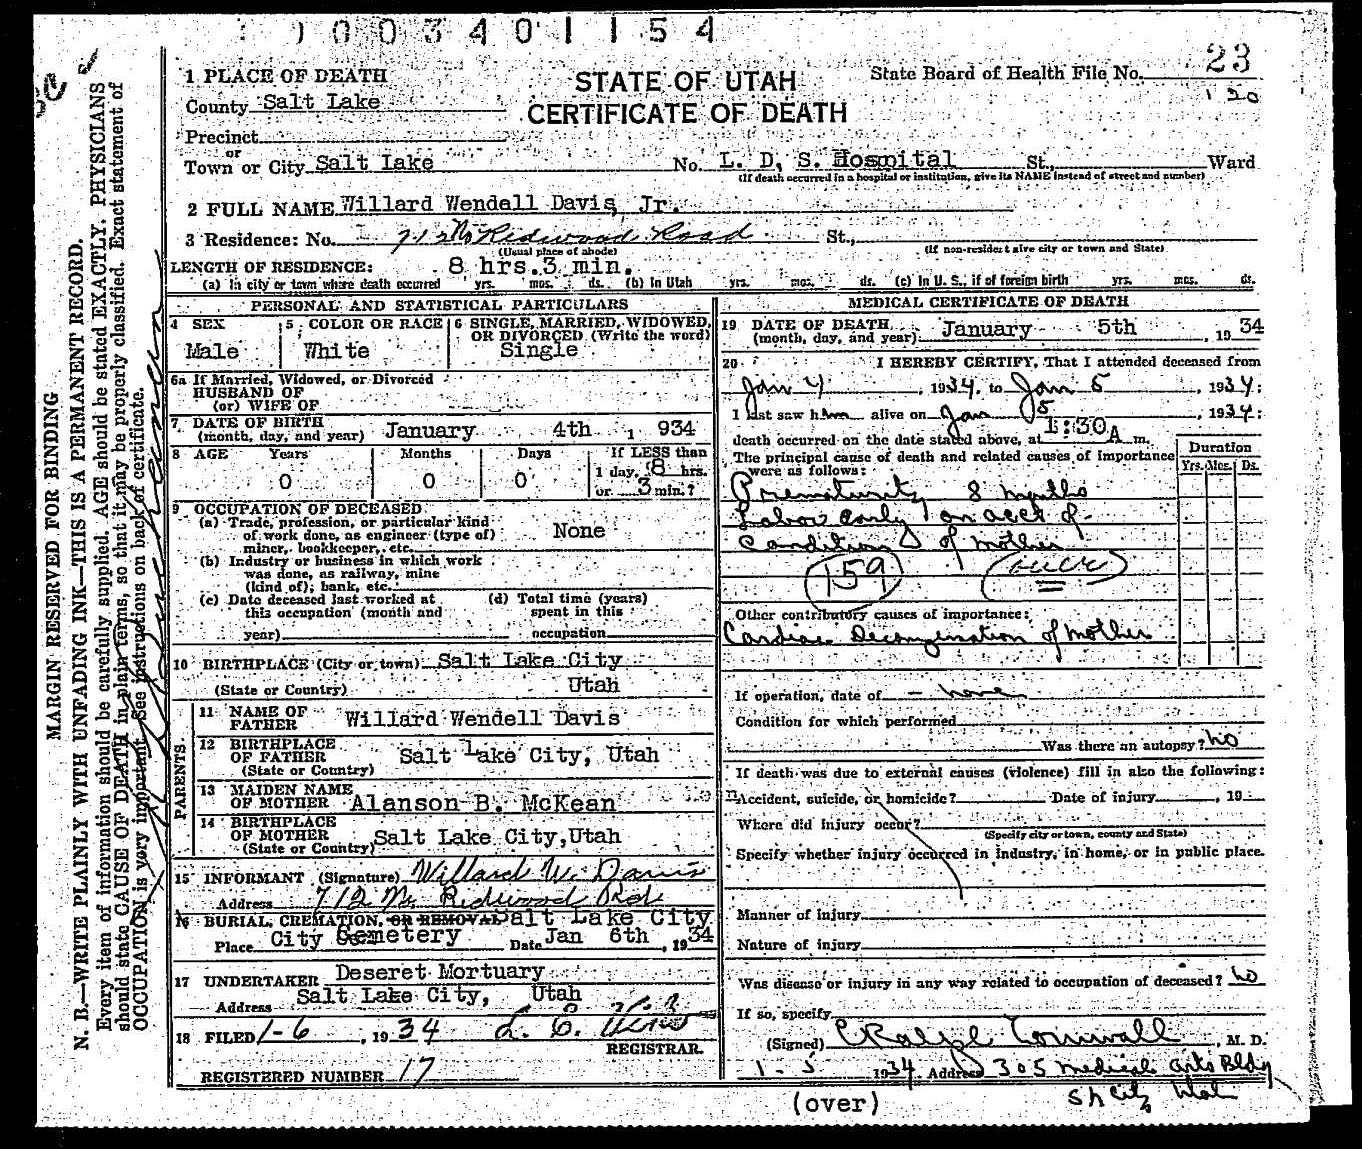 0003401154
1 PLACE OF DEATH
STATE OF UTAH
CERTIFICATE OF DEATH
State Board of Health File No. 23
120
County Salt Lake
Precinct
or
Town or City Salt Lake No. L. D, S. Hospital St., Ward
(If death occurred in a hospital or institution, give its NAME instead of street and number)
2 FULL NAME Willard Wendell Davis, Jr.
3 Residence: No. 712 No Redwood Road St.,
(Usual place of abode) (If non-resident give city or town and State)
LENGTH OF RESIDENCE: 8 hrs. 3 min.
(a) In city or town where death occurred yrs. mos. ds. (b) In Utah yrs. mos. ds. (c) In U. S., if of foreign birth yrs. mos. ds.
PERSONAL AND STATISTICAL PARTICULARS
4 SEX
Male
5 COLOR OR RACE
White
6 SINGLE, MARRIED, WIDOWED, OR DIVORCED (Write the word)
Single
6a If Married, Widowed, or Divorced
HUSBAND OF
(or) WIFE OF
7 DATE OF BIRTH
(month, day, and year) January 4th 1 934
8 AGE Years Months Days If LESS than
0 0 0 1 day, 8 hrs.
or 3 min.?
9 OCCUPATION OF DECEASED
(a) Trade, profession, or particular kind
of work done, as engineer (type of) None
miner, bookkeeper, etc.
(b) Industry or business in which work
was done, as railway, mine
(kind of); bank, etc.
(c) Date deceased last worked at (d) Total time (years)
this occupation (month and spent in this
year) occupation
10 BIRTHPLACE (City or town) Salt Lake City
(State or Country) Utah
PARENTS
11 NAME OF
FATHER Willard Wendell Davis
12 BIRTHPLACE
OF FATHER Salt Lake City, Utah
(State or Country)
13 MAIDEN NAME
OF MOTHER Alanson B. McKean
14 BIRTHPLACE
OF MOTHER Salt Lake City, Utah
(State or Country)
15 INFORMANT (Signature) Willard W. Davis
Address 712 No. Redwood Rd
16 BURIAL, CREMATION, OR REMOVAL Salt Lake City
Place City Cemetery Date Jan 6th, 1934
17 UNDERTAKER Deseret Mortuary
Address Salt Lake City, Utah
18 FILED 1-6, 1934
REGISTRAR.
REGISTERED NUMBER 17
MEDICAL CERTIFICATE OF DEATH
19 DATE OF DEATH
(month, day, and year) January 5th, 1934
20 I HEREBY CERTIFY, That I attended deceased from
Jan 4, 1934, to Jan 5, 1934:
I last saw him alive on Jan 5, 1934:
death occurred on the date stated above, at 1:30 A m.
The principal cause of death and related causes of importance
were as follows:
Duration
Yrs. Mos. Ds.
Prematurity 8 months
Labor early on acct of
condition of mother
159 (over)
Other contributory causes of importance:
Cardiac Decompensation of mother
If operation, date of - none
Condition for which performed
Was there an autopsy? no
If death was due to external causes (violence) fill in also the following:
Accident, suicide, or homicide? Date of injury , 19
Where did injury occur?
(Specify city or town, county and State)
Specify whether injury occurred in industry, in home, or in public place.
Manner of injury
Nature of injury
Was disease or injury in any way related to occupation of deceased? no
If so, specify
(Signed) Ralph Cornwall, M. D.
1-5 1934 Address 305 Medical Arts Bldg
(over)
MARGIN RESERVED FOR BINDING
N. B.—WRITE PLAINLY WITH UNFADING INK—THIS IS A PERMANENT RECORD.
Every item of information should be carefully supplied. AGE should be stated EXACTLY. PHYSICIANS
should state CAUSE OF DEATH in plain terms, so that it may be properly classified. Exact statement of
OCCUPATION is very important. See instructions on back of certificate.